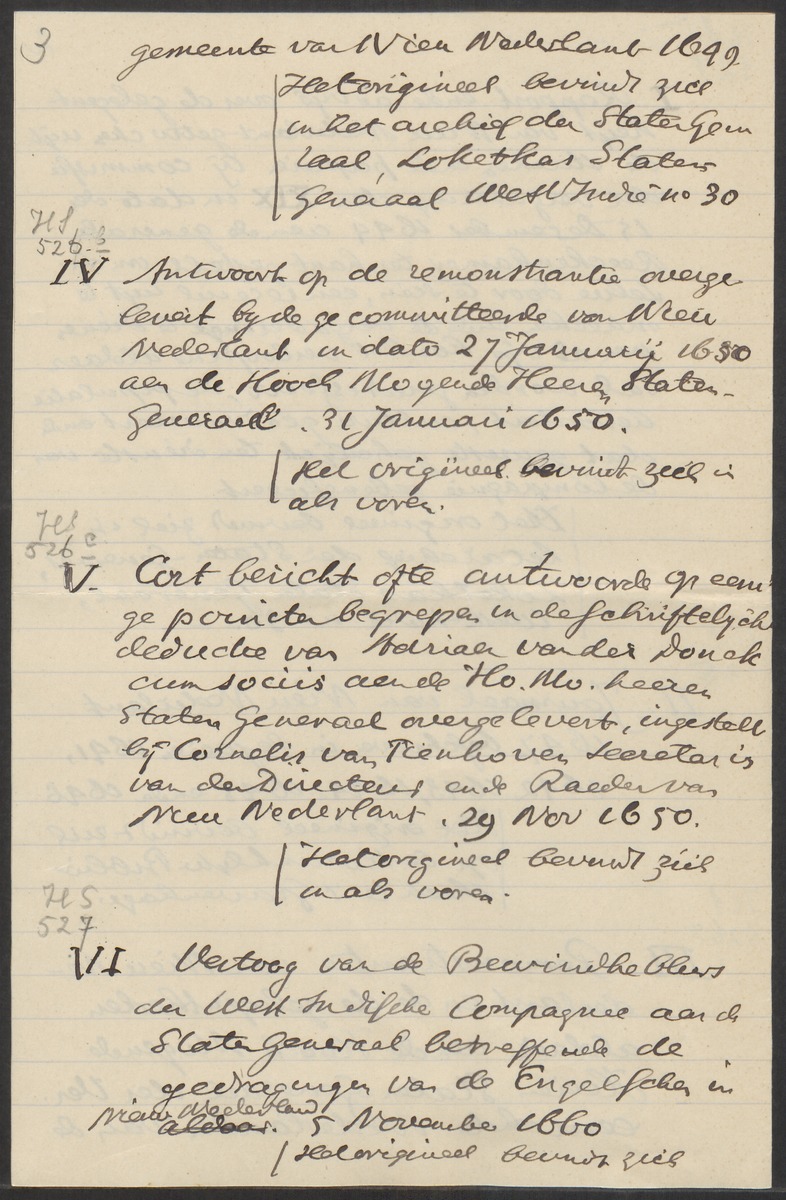 3
gemeente van Nieu Nederlant 1649
Het origineel bevindt zich
in het archief der Staten Gene
raal, Loketkas Staten
Generaal West Indië no 30
HS
526 b
IV Antwoort op de remonstrantie overge
levert by de gecommitteerde van Nieu
Nederlant in dato 27 Januarij 1650
aen de Hooch Mogende Heeren Staten-
Generael. 31 Januari 1650.
Het origineel bevindt zich in
als voren.
HS
526 c
V. Cort bericht ofte antwoorde op eeni
ge poincten begrepen in de schriftelycke
deductie van Adriaen van der Donck
cum sociis aen de Ho. Mo. heeren
Staten Generael overgelevert, ingestelt
bij Cornelis van Tienhoven Secretaris
van den Directeur ende Raeden van
Nieu Nederlant. 29 Nov 1650.
Het origineel bevindt zich
in als voren.
HS
527
VI Vertoog van de Bewindhebbers
der West Indische Compagnie aan de
Staten Generaal betreffende de
gedragingen van de Engelschen in
Nieuw Nederland
aldaar. 5 November 1660
Het origineel bevindt zich